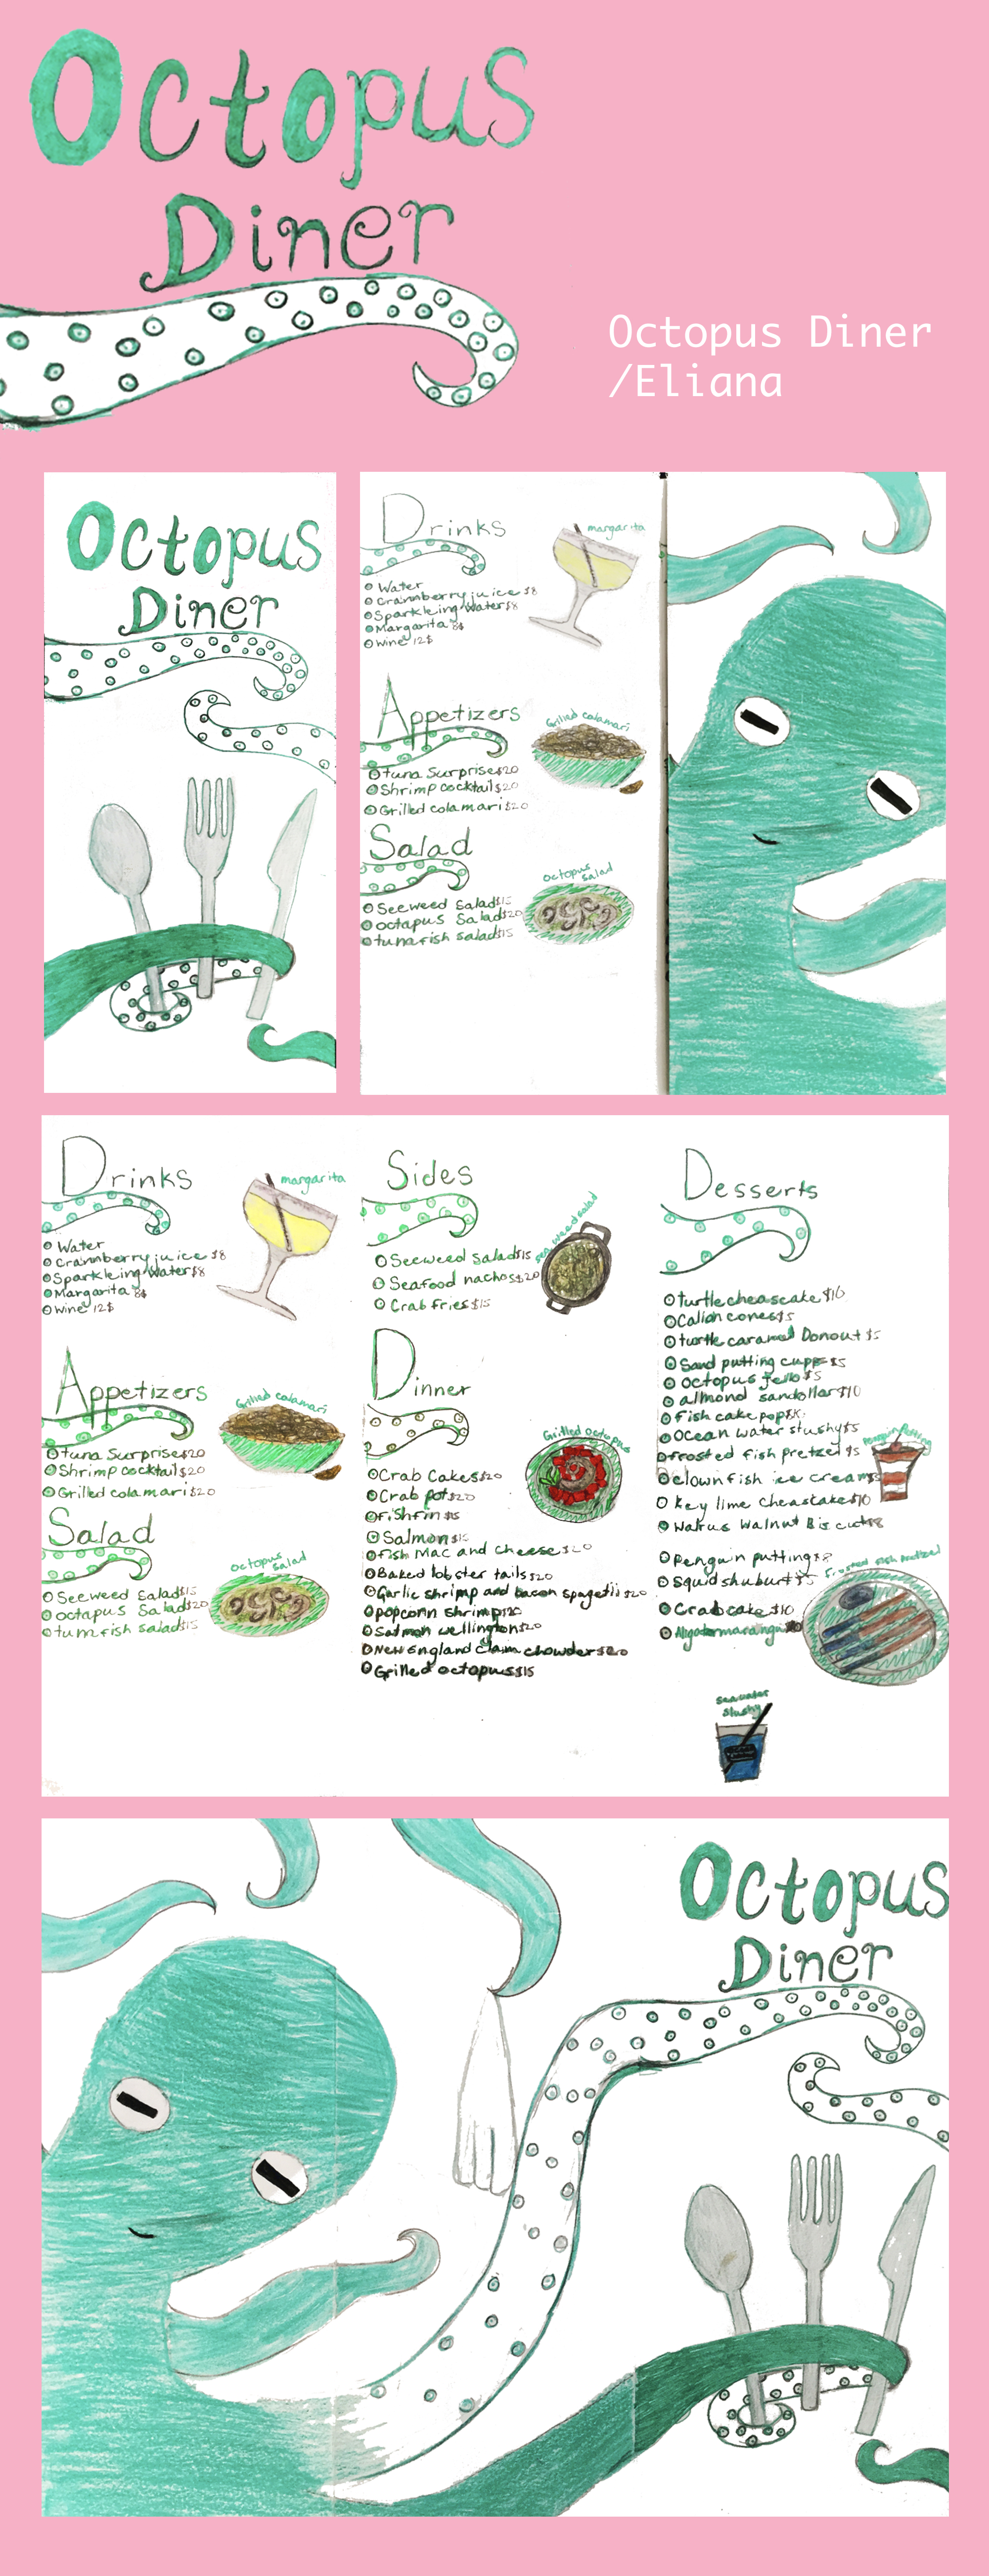 Octopus
Diner
Octopus Diner
/Eliana
Octopus
Diner
Drinks
margarita
Water
Crannberry juice $8
Sparkleing Water $8
Margarita 8$
Wine 12$
Appetizers
Grilled calamari
tuna Surprise $20
Shrimp cocktail $20
Grilled calamari $20
Salad
octopus
salad
Seeweed Salad $15
octapus Salad $20
tunafish salad $15
Drinks
margarita
Water
Crannberry juice $8
Sparkleing Water $8
Margarita 8$
Wine 12$
Appetizers
Grilled calamari
tuna Surprise $20
Shrimp cocktail $20
Grilled calamari $20
Salad
octopus
salad
Seeweed Salad $15
octapus Salad $20
tunafish salad $15
Sides
seaweed salad
Seeweed Salad $15
Seafood nachos $20
Crab fries $15
Dinner
Grilled octopus
Crab Cakes $20
Crab pot $20
Fishfin $15
Salmon $15
Fish Mac and cheese $20
Baked lobster tails $20
Garlic shrimp and bacon spagetii $20
popcorn shrimp $20
Salmon wellington $20
New England Clam chowder $20
Grilled octopus $15
Desserts
turtle cheascake $10
turtle caramel Donout $5
Sand putting cupps $5
octopus jello $5
allmond sandollar $10
Fish cake pop
Ocean water slushy $5
frosted fish pretzel $5
clown fish ice cream $5
Key lime cheascake $10
Walrus Walnut Biscuts $8
Penguin putting
Penguin putting $?
Squid shuburt $5
frosted fish pretzel
Crab cake $10
seawater
slushy
Octopus
Diner